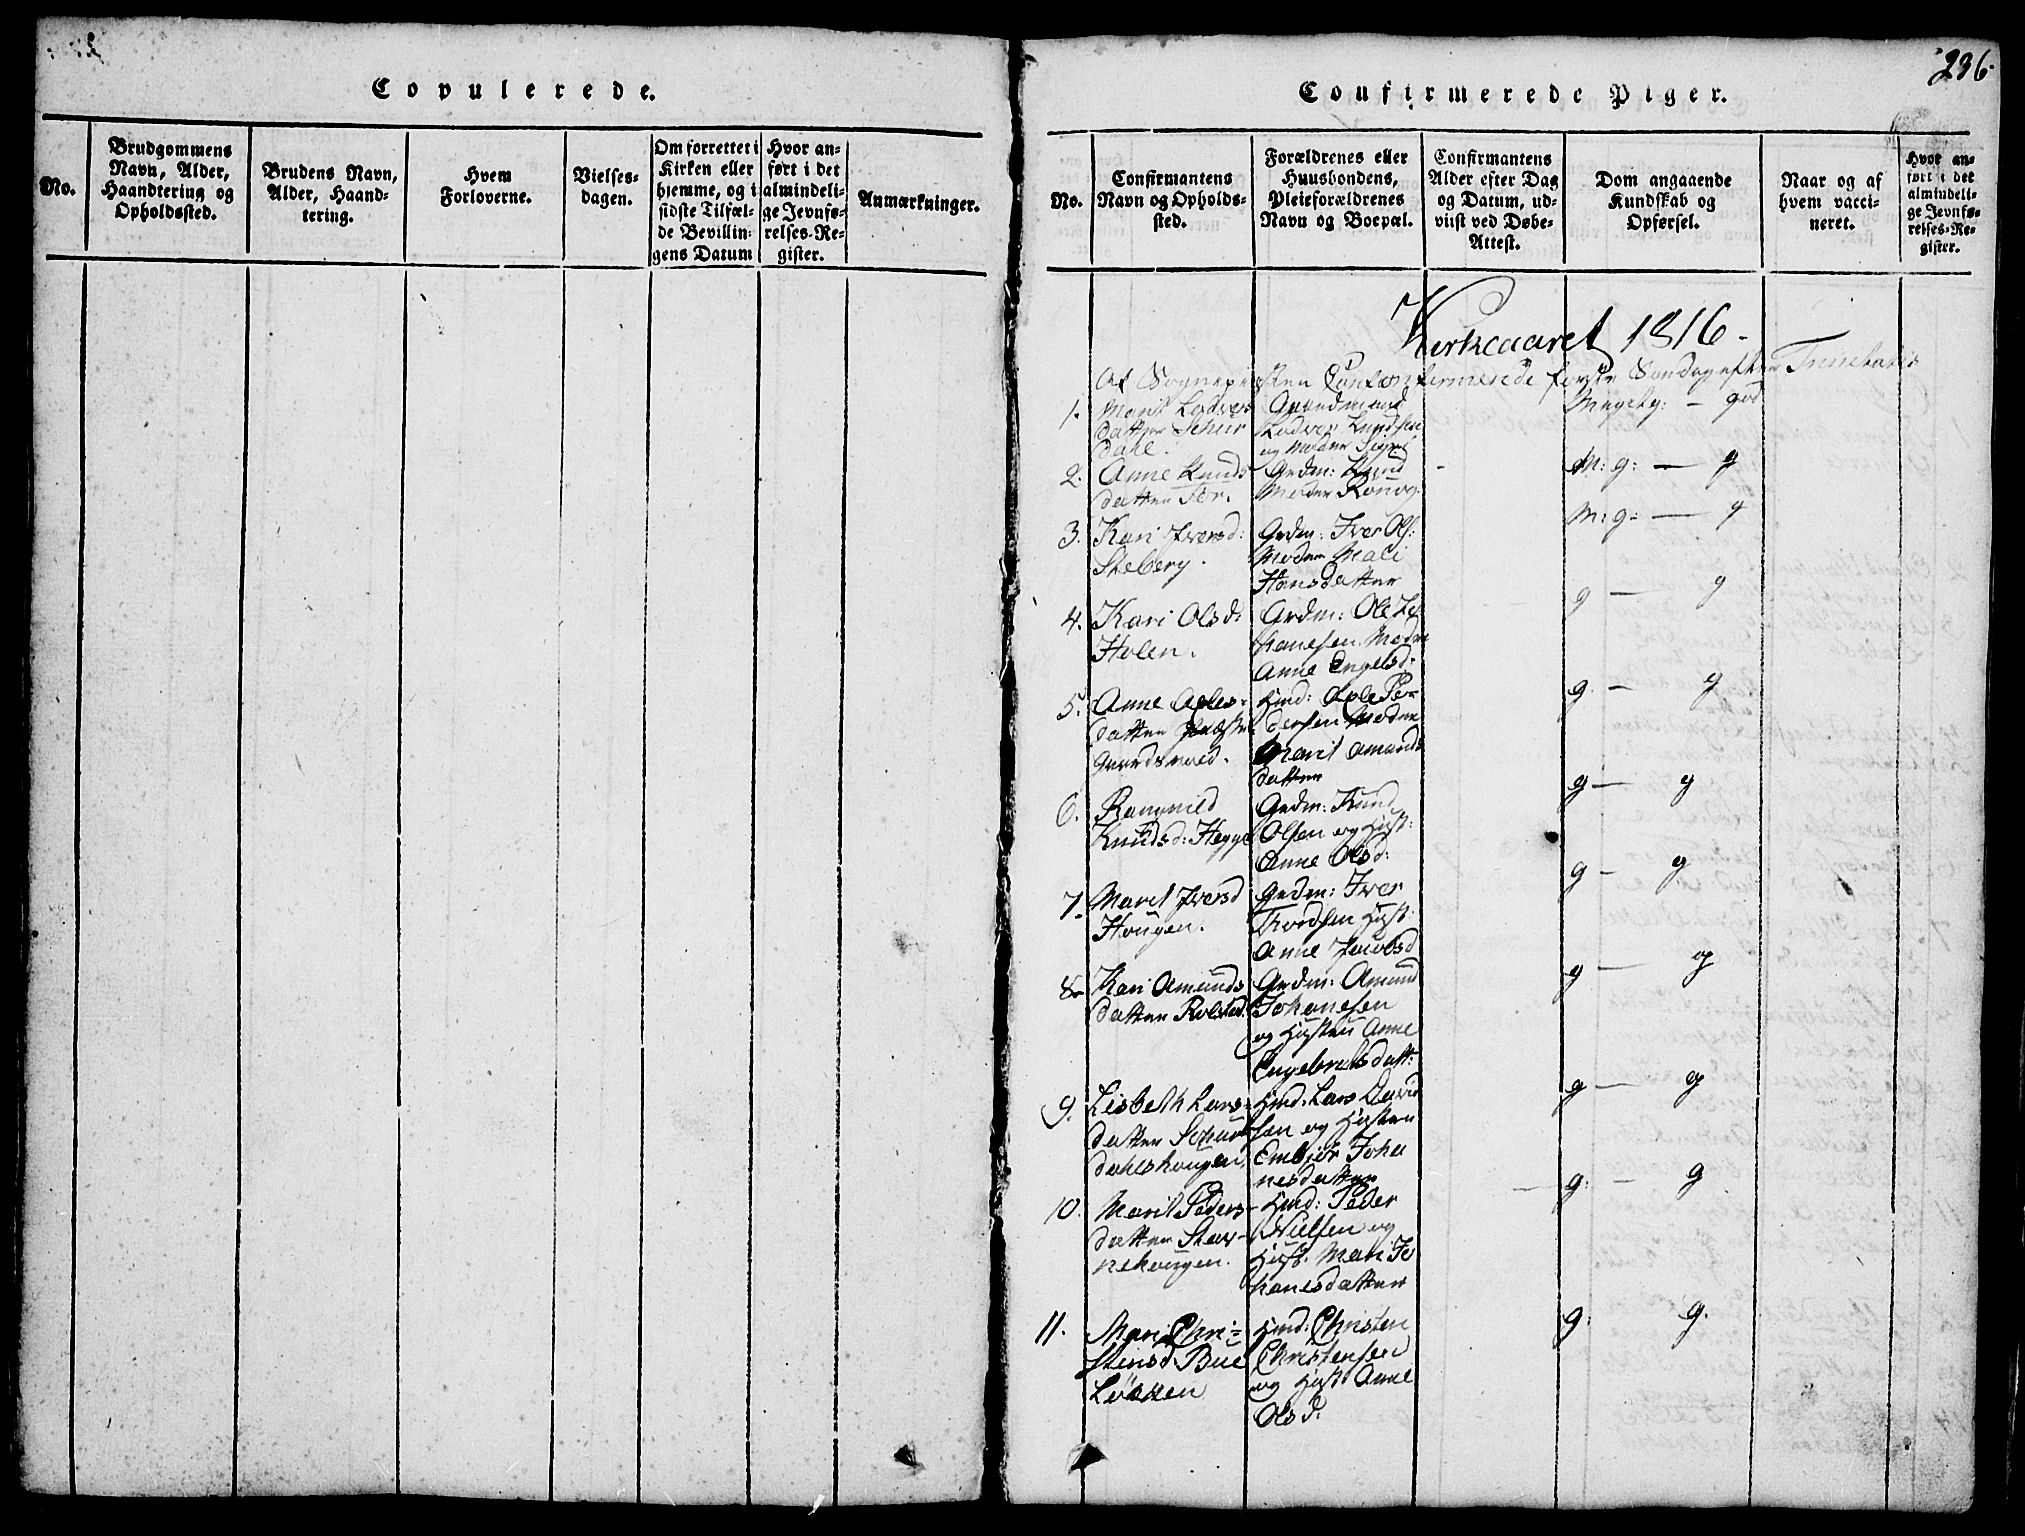 Copulerede.
No.
Brudgommens
Navn, Alder,
Haandtering og
Opholdssted.
Brudens Navn,
Alder, Haand-
tering.
Hvem
Forloverne.
Vielses-
dagen.
Om forrettet i
Kirken eller
hjemme, og i
sidste Tilfæl-
de Bevillin-
gens Datum
Hvor an-
ført i det
almindeli-
ge Jevnfø-
relses-Re-
gister.
Anmærkninger.
236
Confirmerede Piger.
No.
Confirmantens
Navn og Opholds-
sted.
Forældrenes eller
Huusbondens,
Pleieforældrenes
Navn og Boepæl.
Confirmantens
Alder efter Dag
og Datum, ud-
viist ved Døbe-
Attest.
Dom angaaende
Kundskab og
Opførsel.
Naar og af
hvem vacci-
neret.
Hvor an-
ført i det
almindeli-
ge Jevnfø-
relses-Re-
gister.
Kirkeaaret 1816.
første Søndag efter Trinitatis
1. Marit
datter
dahl.
Gaardmand
og Moder Sigri
Meget g: — god
2. Anne Knuds
datter
Grdm: Knud
Moder Rønnog
M: g: — g
3. Kari Iversd:
Steberg.
Grdm: Iver Ols:
Moder Mali
Hansdatter
M: g: — g
4. Kari Olsd:
Holen.
Grdm: Ole Jo
hanesen. Moder
Anne Engelsd:
g — g
5. Anne
datter Præste
gaardsvald.
Hmd: Ole Pe-
dersen Moder
Marit Amunds
datter
g. — g
6. Rangnild
Knudsd: Hegge
Grdm: Knud
Olsen og Hust:
Anne Olsd:
g — g
7. Marit Iversd
Hougen.
Grdm: Iver
Hust:
Anne Jacobsd
g — g
8. Kari Amunds
datter Rolstad.
Grdm: Amund
Johanesen
og Hustru Anne
Engebretsdatt:
g — g
9. Lisbeth Lars-
datter
dahlshougen.
Hmd: Lars David
sen og Hustru
Embiør Joha
nesdatter
g — g
10. Marit Peders-
datter Stav-
nehougen.
Hmd: Peder
Nielsen og
Hust: Mari Jo
hanesdatter
g: — g
11. Mari Chri-
stensd. Bue
Løkken
Hmd: Christen
Christensen
og Hust: Anne
Olsd:
g: g.